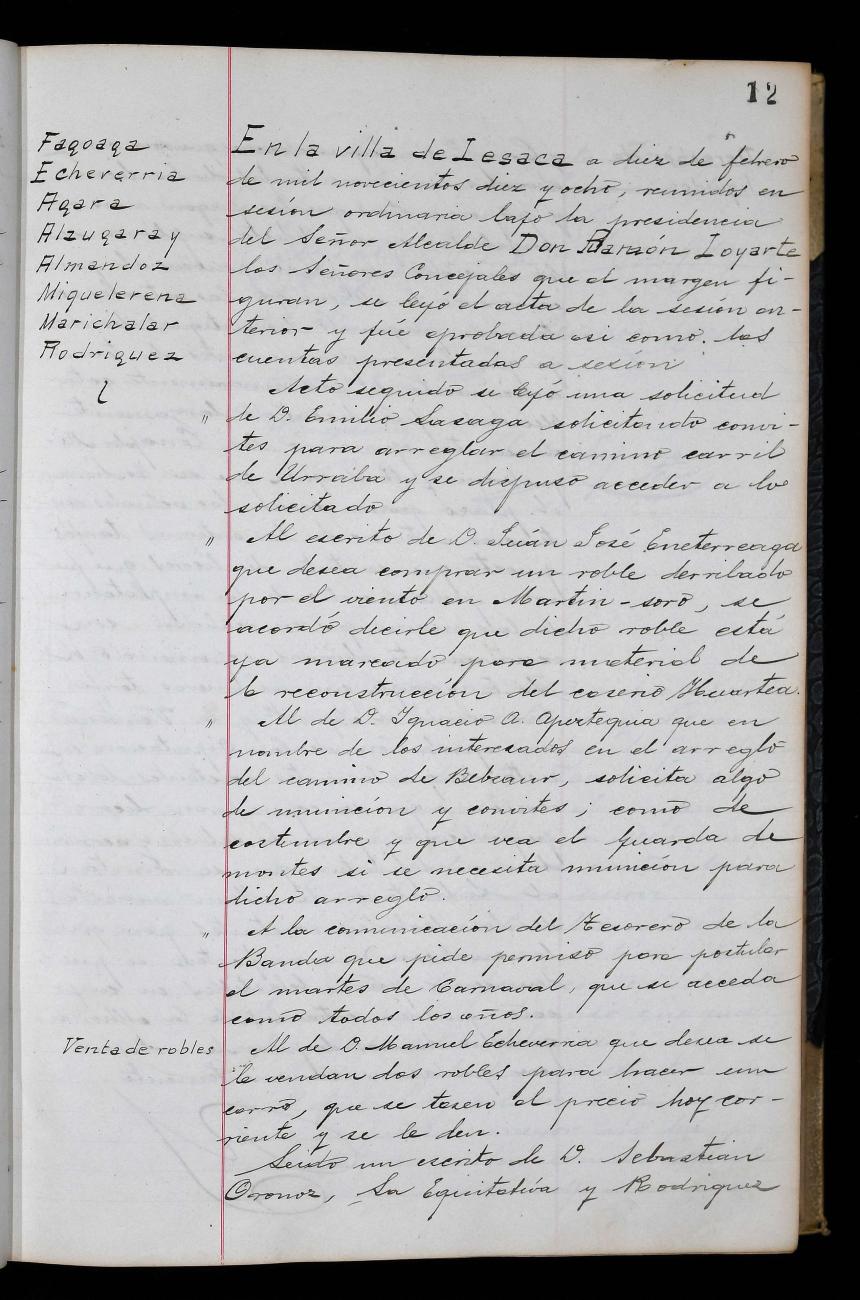 12
Fagoaga
Echeverria
Agara
Alzugaray
Almandoz
Miquelerena
Marichalar
Rodriguez
En la villa de Lesaca a diez de febrero
de mil novecientos diez y ocho, reunidos en
sesión ordinaria bajo la presidencia
del Señor Alcalde Don Ramón Loyarte
los Señores Concejales que al margen fi-
guran, se leyó el acta de la sesión an-
terior y fué aprobada asi como. las
cuentas presentadas a sesión
Acto seguido se leyó una solicitud
" de D. Emilio Sasaga solicitando convi-
tes para arreglar el camino carril
de Urraiba y se dispuso acceder a lo
solicitado
" Al escrito de D. Juán José Eneterreaga
que desea comprar un roble derribado
por el viento en Martin-soro, se
acordó decirle que dicho roble está
ya marcado para material de
la reconstrucción del caserio Huartea.
" Al de D. Ignacio A. Apezteguia que en
nombre de los interesados en el arreglo
del camino de Bebeaur, solicita algo
de munición y convites; como de
costumbre y que vea el Guarda de
montes si se necesita munición para
dicho arreglo.
" A la comunicación del Tesorero de la
Banda que pide permiso para postular
el martes de Carnaval, que se acceda
como todos los años.
Venta de robles
Al de D. Manuel Echeverria que desea se
le vendan dos robles para hacer un
carro, que se tasen al precio hoy cor-
riente y se le den.
Leido un escrito de D. Sebastián
Oronoz, La Equitativa y Rodriguez